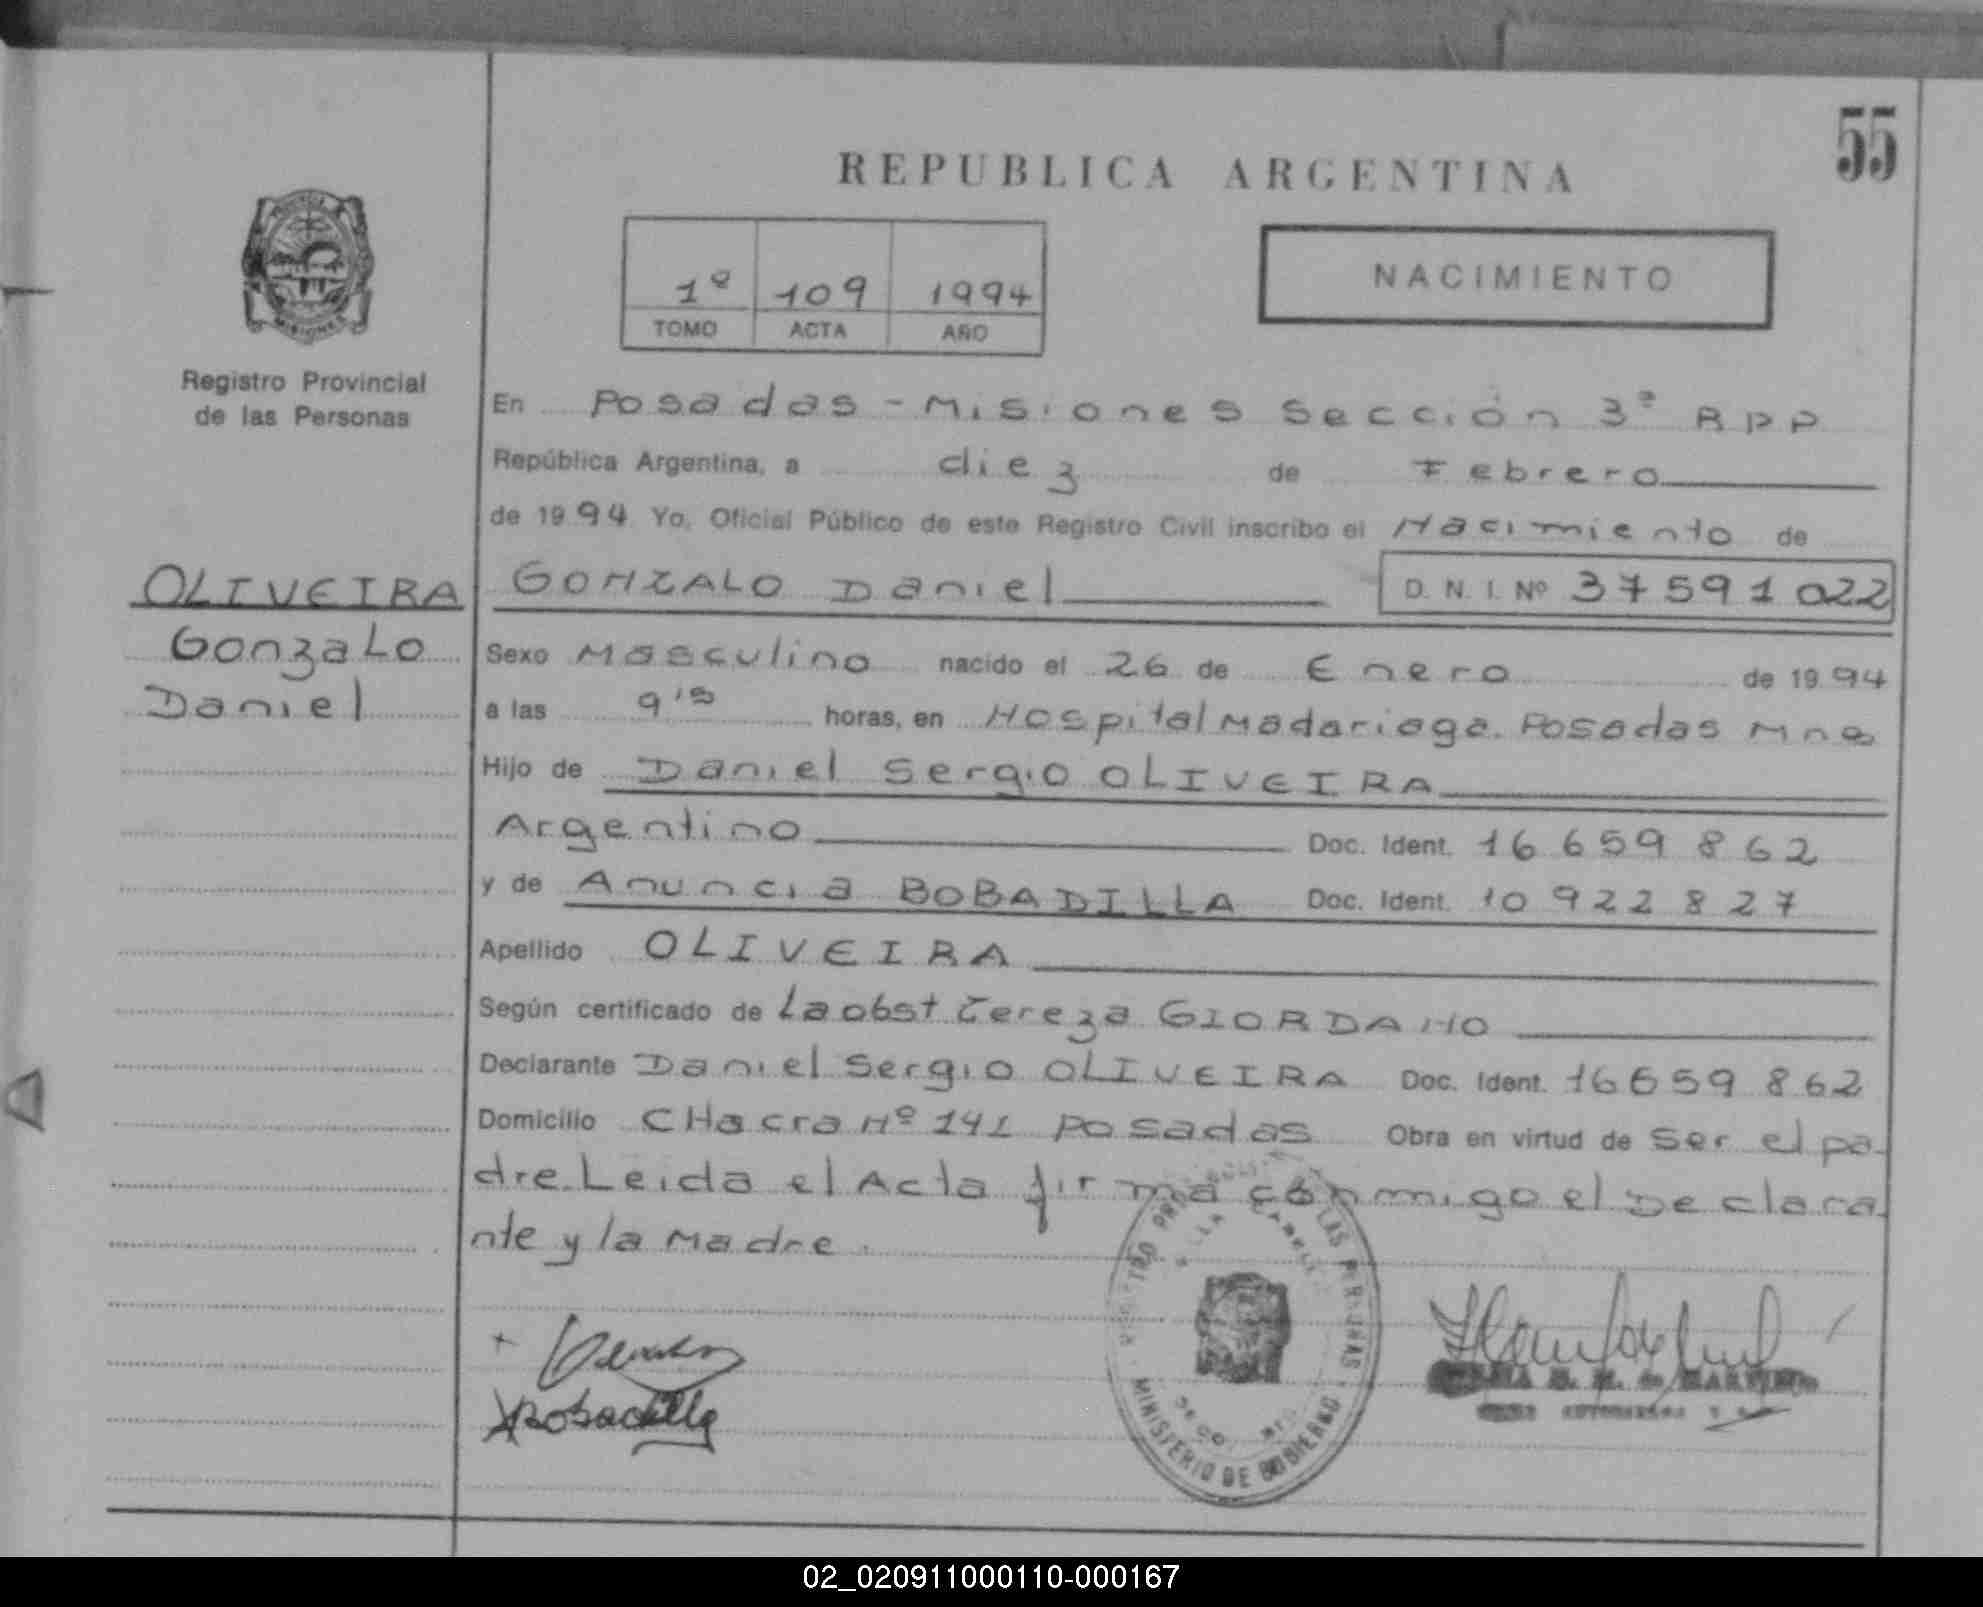 55
REPUBLICA ARGENTINA
1º 109 1994
TOMO ACTA AÑO
NACIMIENTO
MISIONES
Registro Provincial
de las Personas
OLIVEIRA
Gonzalo
Daniel
En Posadas - Misiones Sección 3ª RPP
República Argentina, a diez de Febrero
de 1994 Yo, Oficial Público de este Registro Civil inscribo el Nacimiento de
GONZALO Daniel D. N. I. Nº 37591022
Sexo Masculino nacido el 26 de Enero de 1994
a las 9'15 horas, en Hospital Madariaga. Posadas Mnes
Hijo de Daniel Sergio OLIVEIRA
Argentino Doc. Ident. 16 659 862
y de Anuncia BOBADILLA Doc. Ident. 10 922 827
Apellido OLIVEIRA
Según certificado de La obst Tereza GIORDANO
Declarante Daniel Sergio OLIVEIRA Doc. Ident. 16659 862
Domicilio CHacra Nº 141 Posadas Obra en virtud de ser el pa-
dre. Leida el Acta firma conmigo el Declara-
nte y la Madre.
Bobadilla
MINISTERIO DE GOBIERNO
02_020911000110-000167